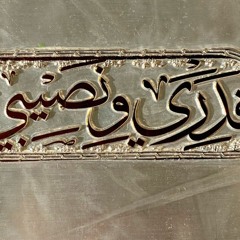 قدري ونصيبي